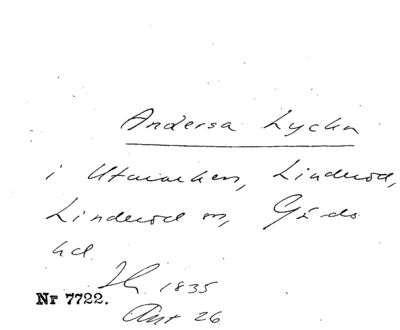 Andersa Lycka
i Utmarken, Linderöd,
Linderöd sn, Gärds
hd.
Jh. 1835
Nr 7722.
Ant 26